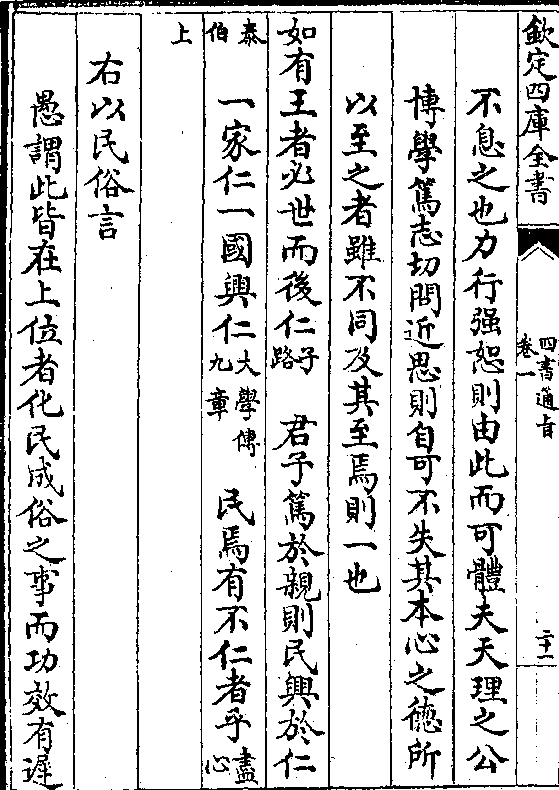 欽定四庫全書
四書通旨
卷一
二十一
不息之也力行强恕則由此而可體夫天理之公
博學篤志切問近思則自可不失其本心之德所
以至之者雖不同及其至焉則一也
如有王者必世而後仁子路 君子篤於親則民興於仁
泰伯 一家仁一國興仁大學傳九章 民焉有不仁者乎盡心
上
右以民俗言
愚謂此皆在上位者化民成俗之事而功效有遲